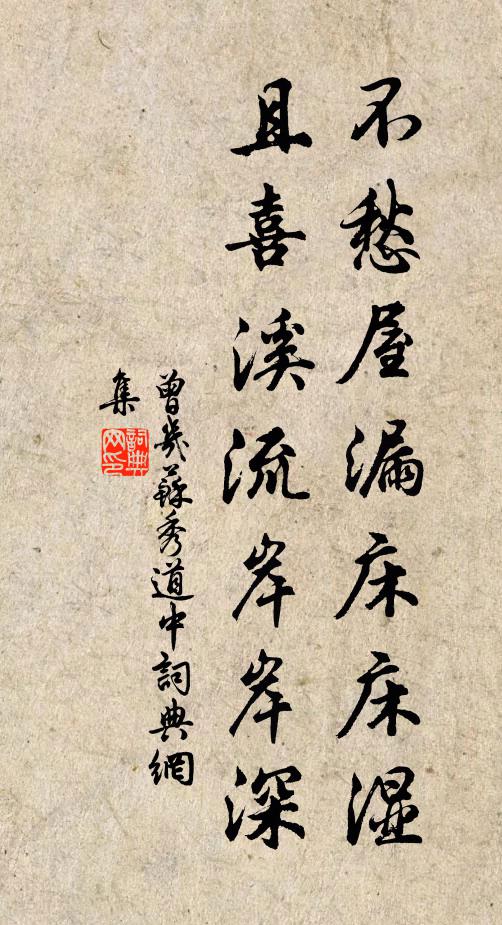 不愁屋漏床床湿
且喜溪流岸岸深
曾几蘇秀道中詞典網
集
詞典网印